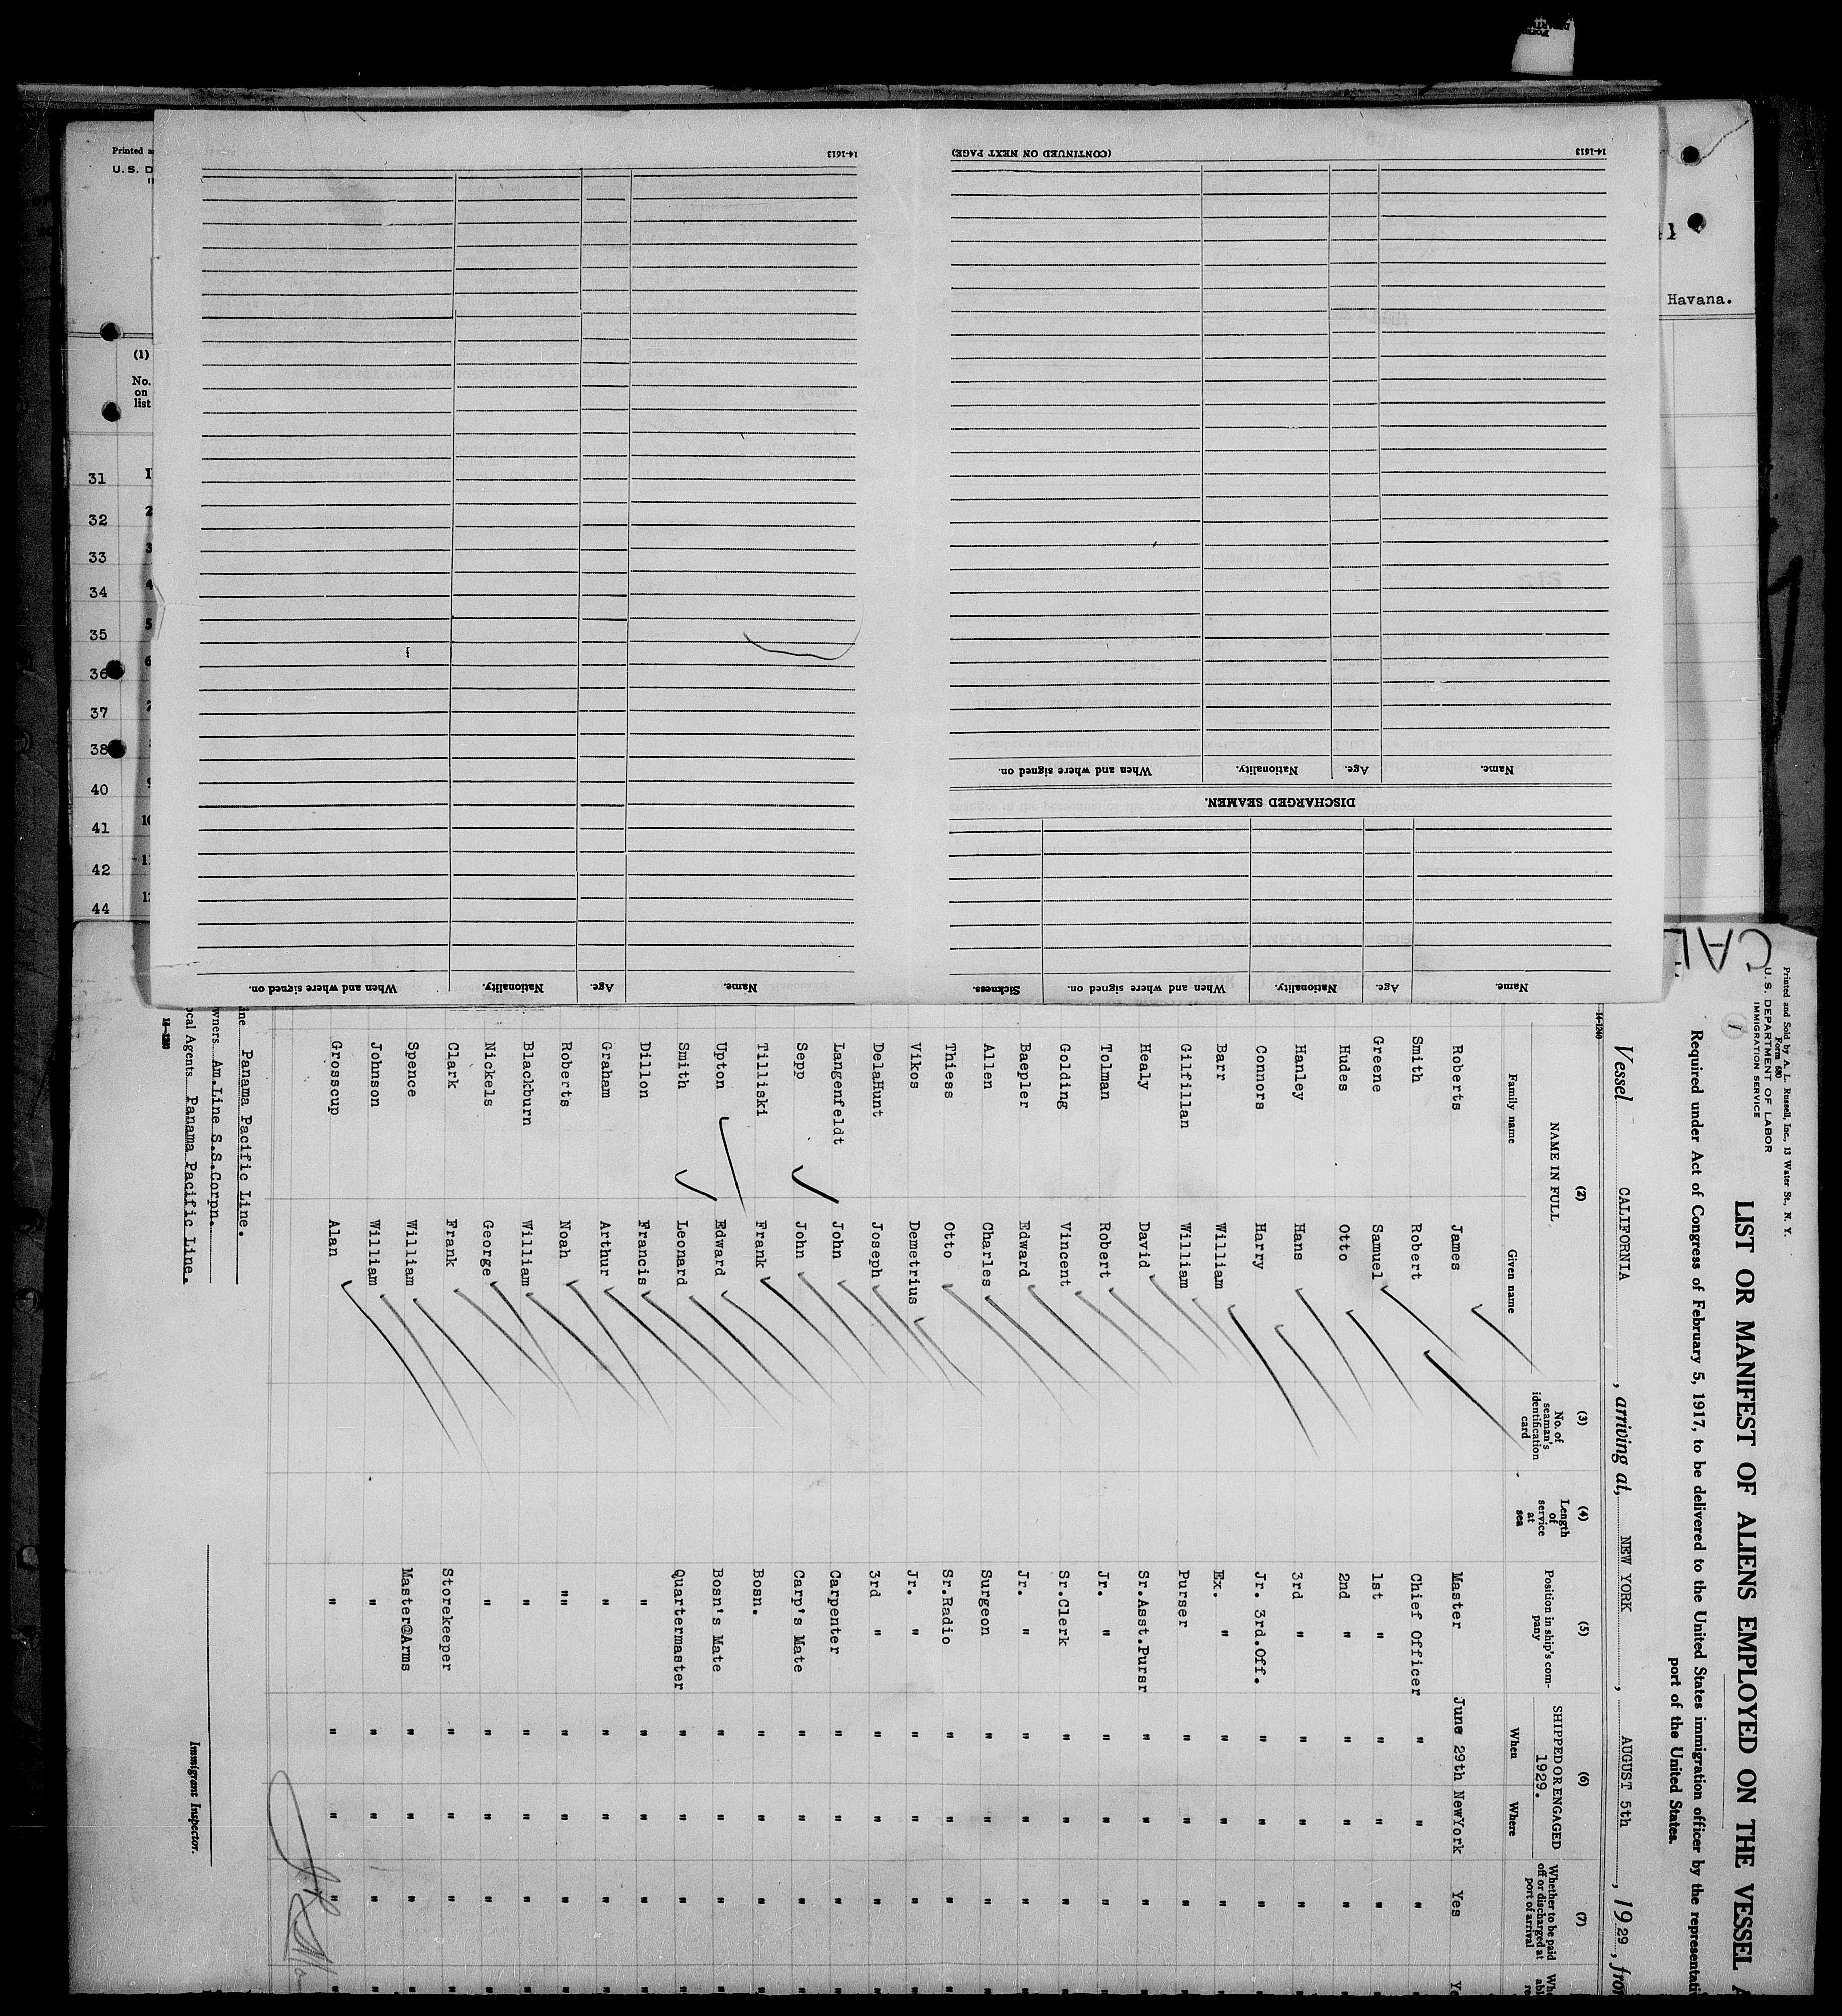 Printed
U. S. D
(1)
No.
on
list
31
32
33
34
35
36
37
38
40
41
42
44
1
2
3
4
5
6
7
9
Havana.
14-1613
(CONTINUED ON NEXT PAGE)
14-1613
Name.
Age.
Nationality.
When and where signed on.
Sickness.
DISCHARGED SEAMEN.
Name.
Age.
Nationality.
When and where signed on.
Name.
Age.
Nationality.
When and where signed on.
CAL
Printed and Sold by A. L. Russell, Inc., 13 Water St., N. Y.
Form 680
U. S. DEPARTMENT OF LABOR
IMMIGRATION SERVICE
1
LIST OR MANIFEST OF ALIENS EMPLOYED ON THE VESSEL A
Required under Act of Congress of February 5, 1917, to be delivered to the United States immigration officer by the representati
port of the United States.
Vessel CALIFORNIA, arriving at, NEW YORK, AUGUST 5th, 1929, fro
14-1240
(2) (3) (4) (5) (6) (7)
NAME IN FULL
Family name Given name
No. of seaman's identification card
Length of service at sea
Position in ship's company
SHIPPED OR ENGAGED
1929.
When Where
Whether to be paid off or discharged at port of arrival
Roberts James Master June 29th NewYork Yes Ye
Smith Robert Chief Officer " " " "
Greene Samuel 1st " " " " "
Hudes Otto 2nd " " " " "
Hanley Hans 3rd " " " " "
Connors Harry Jr. 3rd.Off. " " " "
Barr William Ex. " " " " "
Gilfillan William Purser " " " "
Healy David Sr.Asst.Pursr " " " "
Tolman Robert Jr. " " " " "
Golding Vincent Sr.Clerk " " " "
Baepler Edward Jr. " " " " "
Allen Charles Surgeon " " " "
Thiess Otto Sr.Radio " " " "
Vikos Demetrius Jr. " " " " "
DelaHunt Joseph 3rd " " " " "
Langenfeldt John Carpenter " " " "
Sepp John Carp's Mate " " " "
Tilliski Frank Bosn. " " " "
Upton Edward Bosn's Mate " " " "
Smith Leonard Quartermaster " " " "
Dillon Francis " " " " "
Graham Arthur " " " " "
Roberts Noah "" " " " "
Blackburn William " " " " "
Nickels George " " " " "
Clark Frank Storekeeper " " " "
Spence William Master@Arms " " " "
Johnson William " " " " "
Grosscup Alan " " " " "
ine Panama Pacific Line.
wners Am.Line S.S.Corpn.
ocal Agents Panama Pacific Line.
14-1240
Immigrant Inspector.